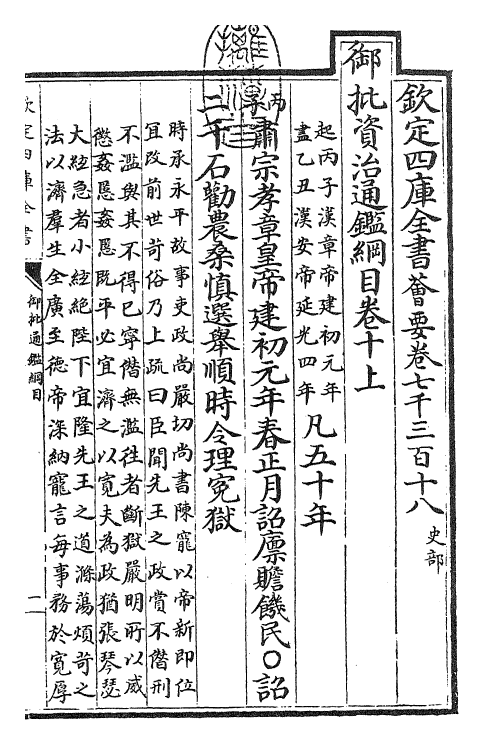 欽定四庫全書薈要卷七千三百十八 史部
御批資治通鑑綱目卷十上
起丙子漢章帝建初元年
盡乙丑漢安帝延光四年
凡五十年
丙子
肅宗孝章皇帝建初元年春正月詔廩贍饑民○詔
二千石勸農桑慎選舉順時令理冤獄
時承永平故事吏政尚嚴切尚書陳寵以帝新即位
宜改前世苛俗乃上疏曰臣聞先王之政賞不僭刑
不濫與其不得已寧僭無濫往者斷獄嚴明所以威
懲姦慝姦慝既平必宜濟之以寬夫為政猶張琴瑟
大絃急者小絃絶陛下宜隆先王之道滌蕩煩苛之
法以濟羣生全廣至德帝深納寵言每事務於寬厚
欽定四庫全書
御批通鑑綱目